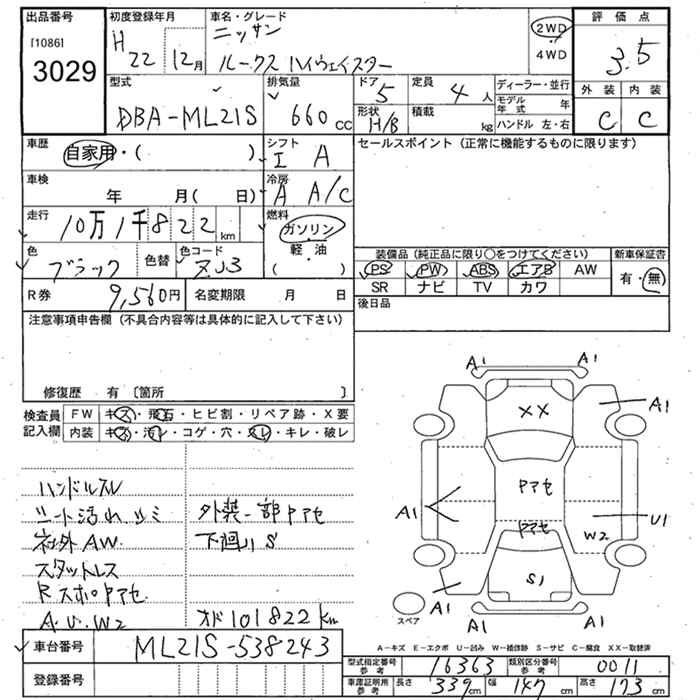 出品番号
[1086]
3029
初度登録年月
H 22 12月
車名・グレード
ニッサン
ルークス ハイウェイスター
2WD
4WD
評価点
3.5
外装 内装
C C
型式
DBA-ML21S
排気量
660 cc
ドア 5
定員 4人
形状 H/B
積載 kg
ディーラー・並行
モデル年式 年
ハンドル 左・右
車歴
自家用・( )
シフト
I A
セールスポイント (正常に機能するものに限ります)
車検
年 月( 日)
冷房
A A/C
走行
10万1千822km
燃料
ガソリン
軽・油
( )
色
ブラック
色替
色コード
ZJ3
装備品 (純正品に限り〇をつけてください)
新車保証書
PS PW ABS エアB AW
SR ナビ TV カワ
有・無
R券 9,560円
名変期限 月 日
後日品
注意事項申告欄 (不具合内容等は具体的に記入して下さい)
修復歴 有 〔箇所 〕
検査員
記入欄
FW キズ・飛石・ヒビ割・リペア跡・X要
内装 キズ・汚レ・コゲ・穴・スレ・キレ・破レ
ハンドルスレ
シート汚れ シミ 外装一部アセ
社外AW 下廻りS
スタットレス
Rスポイアセ
A.U.W2 オド101822km
車台番号 ML21S-538243
登録番号
A1 A1
XX
A1
アアセ
A1
U1
W2
アアセ
S1
A1 A1
A1 A1
スペア
A-キズ E-エクボ U-凹み W-補修跡 S-サビ C-腐食 XX-取替済
型式指定番号 参考 16363
類別区分番号 参考 0011
車庫証明用 参考 長さ 339cm 幅 147cm 高さ 173cm